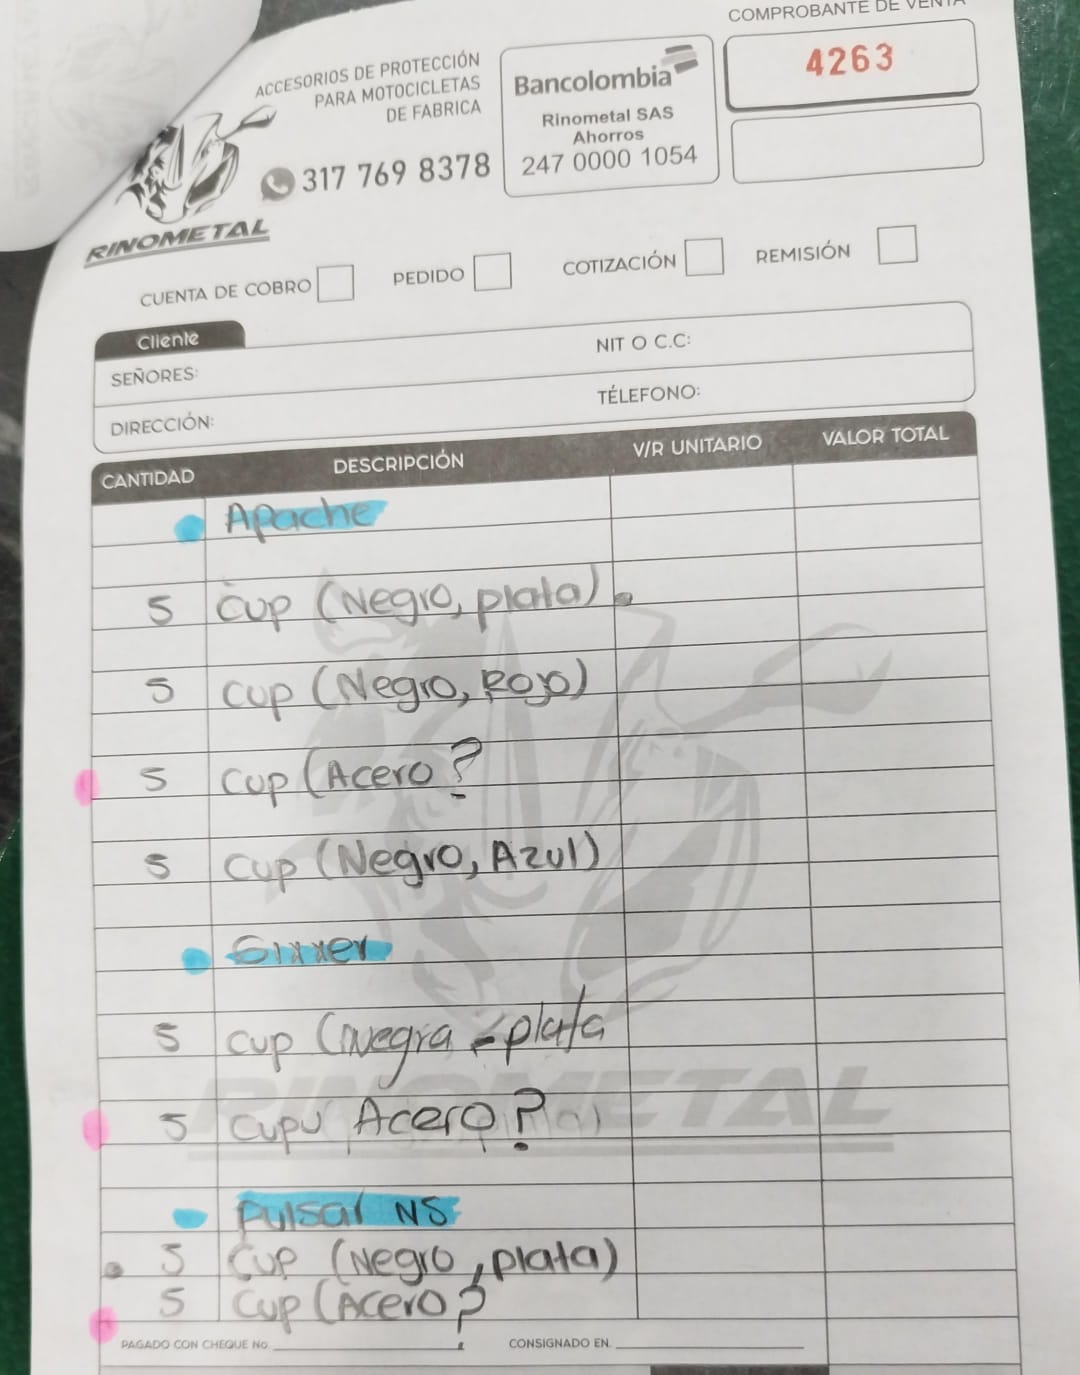 COMPROBANTE DE VENTA
4263
ACCESORIOS DE PROTECCIÓN
PARA MOTOCICLETAS
DE FABRICA
317 769 8378
Bancolombia
Rinometal SAS
Ahorros
247 0000 1054
RINOMETAL
CUENTA DE COBRO PEDIDO COTIZACIÓN REMISIÓN
Cliente
SEÑORES: NIT O C.C:
DIRECCIÓN: TÉLEFONO:
CANTIDAD DESCRIPCIÓN V/R UNITARIO VALOR TOTAL
Apache
5 Cup (Negro, plata).
5 Cup (Negro, Rojo)
5 Cup (Acero ?
5 Cup (Negro, Azul)
Gixxer
5 Cup (Negra - plata
5 Cupu Acero ?
RINOMETAL
Pulsar NS
5 Cup (Negro, plata)
5 Cup (Acero ?
PAGADO CON CHEQUE No. CONSIGNADO EN.